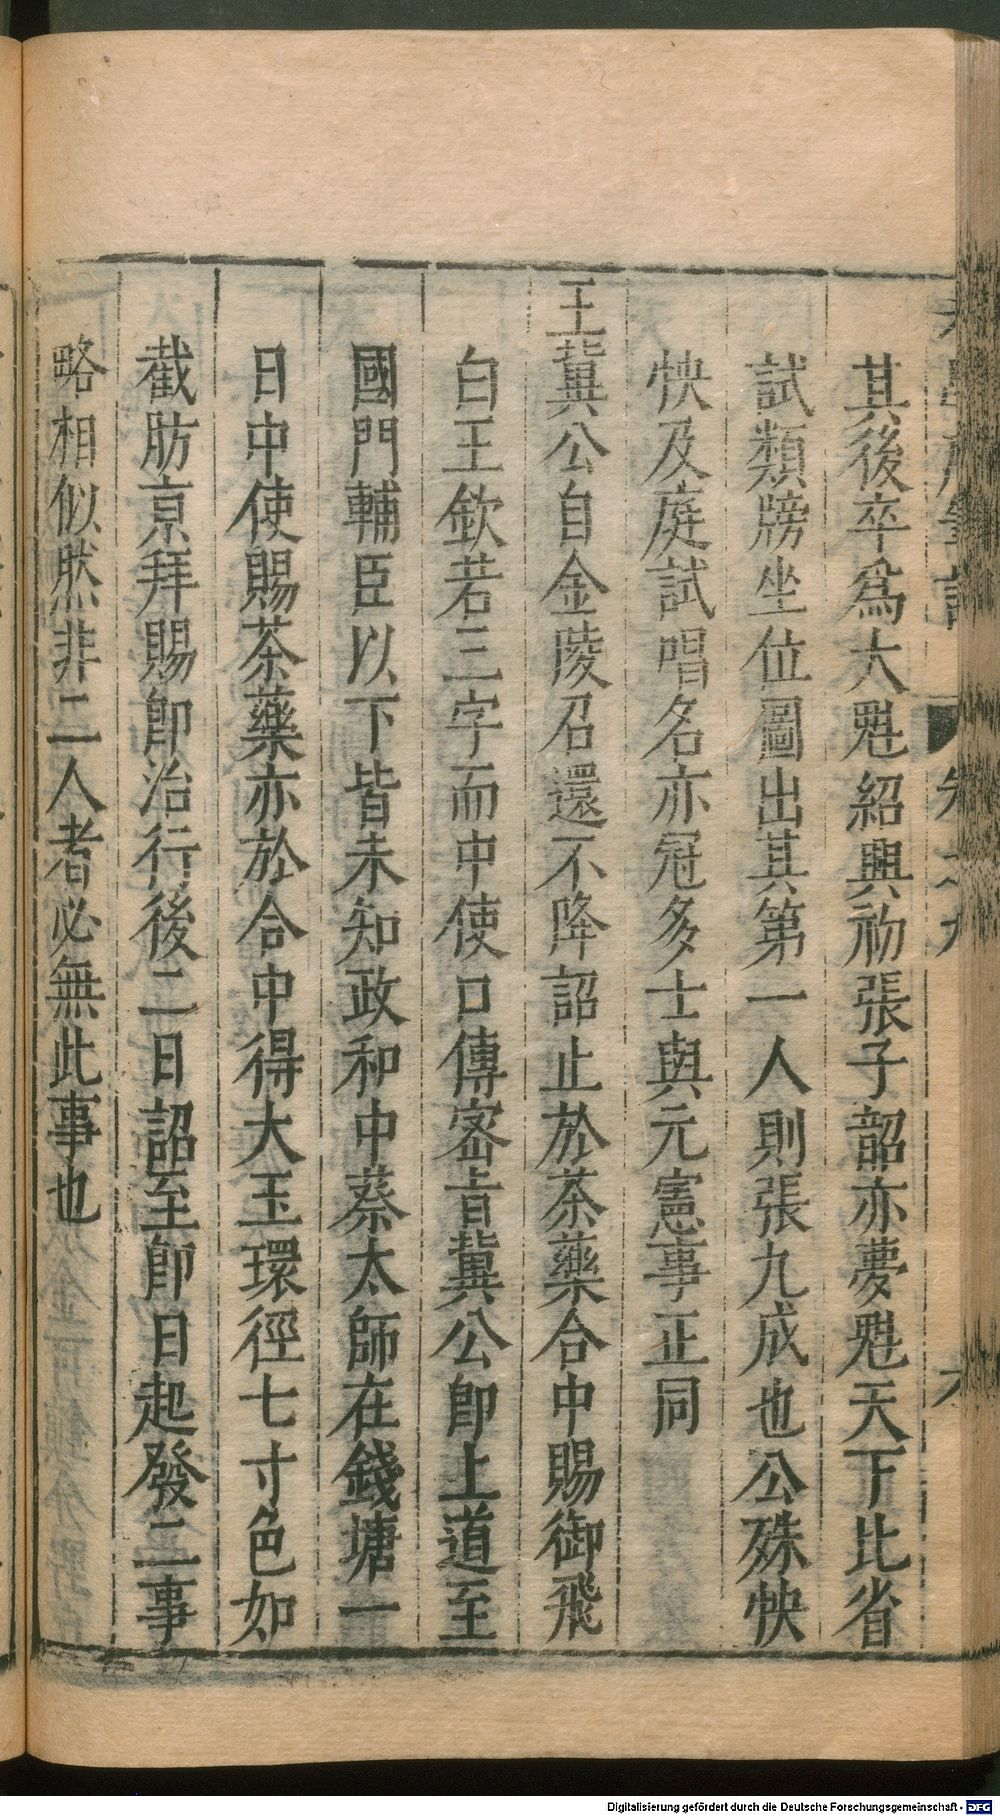 其後卒爲大魁紹興初張子韶亦夢魁天下比省
試類牓坐位圖出其第一人則張九成也公殊怏
怏及庭試唱名亦冠多士與元憲事正同
王冀公自金陵召還不降詔止於茶藥合中賜御飛
白王欽若三字而中使口傳宻旨冀公卽上道至
國門輔臣以下皆未知政和中蔡太師在錢塘一
日中使賜茶藥亦於合中得大玉環徑七寸色如
截肪京拜賜卽治行後二日詔至卽日起發二事
略相似然非二人者必無此事也
Digitalisierung gefördert durch die Deutsche Forschungsgemeinschaft - DFG